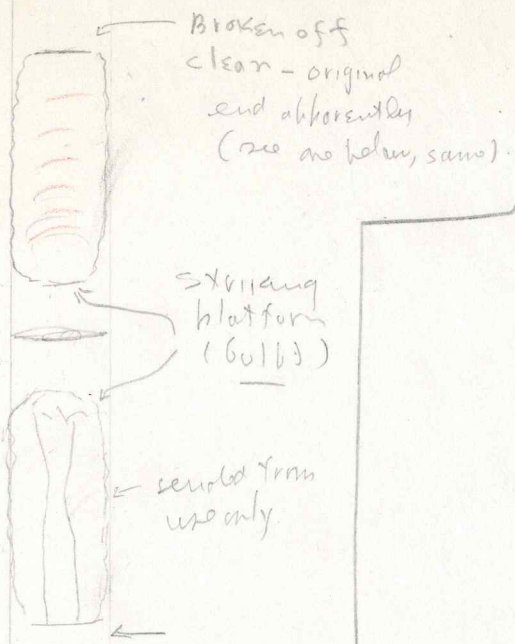 Broken off
clean - original
end apparently
(see one below, same).
Striking
platform
(bulb)
from
use only